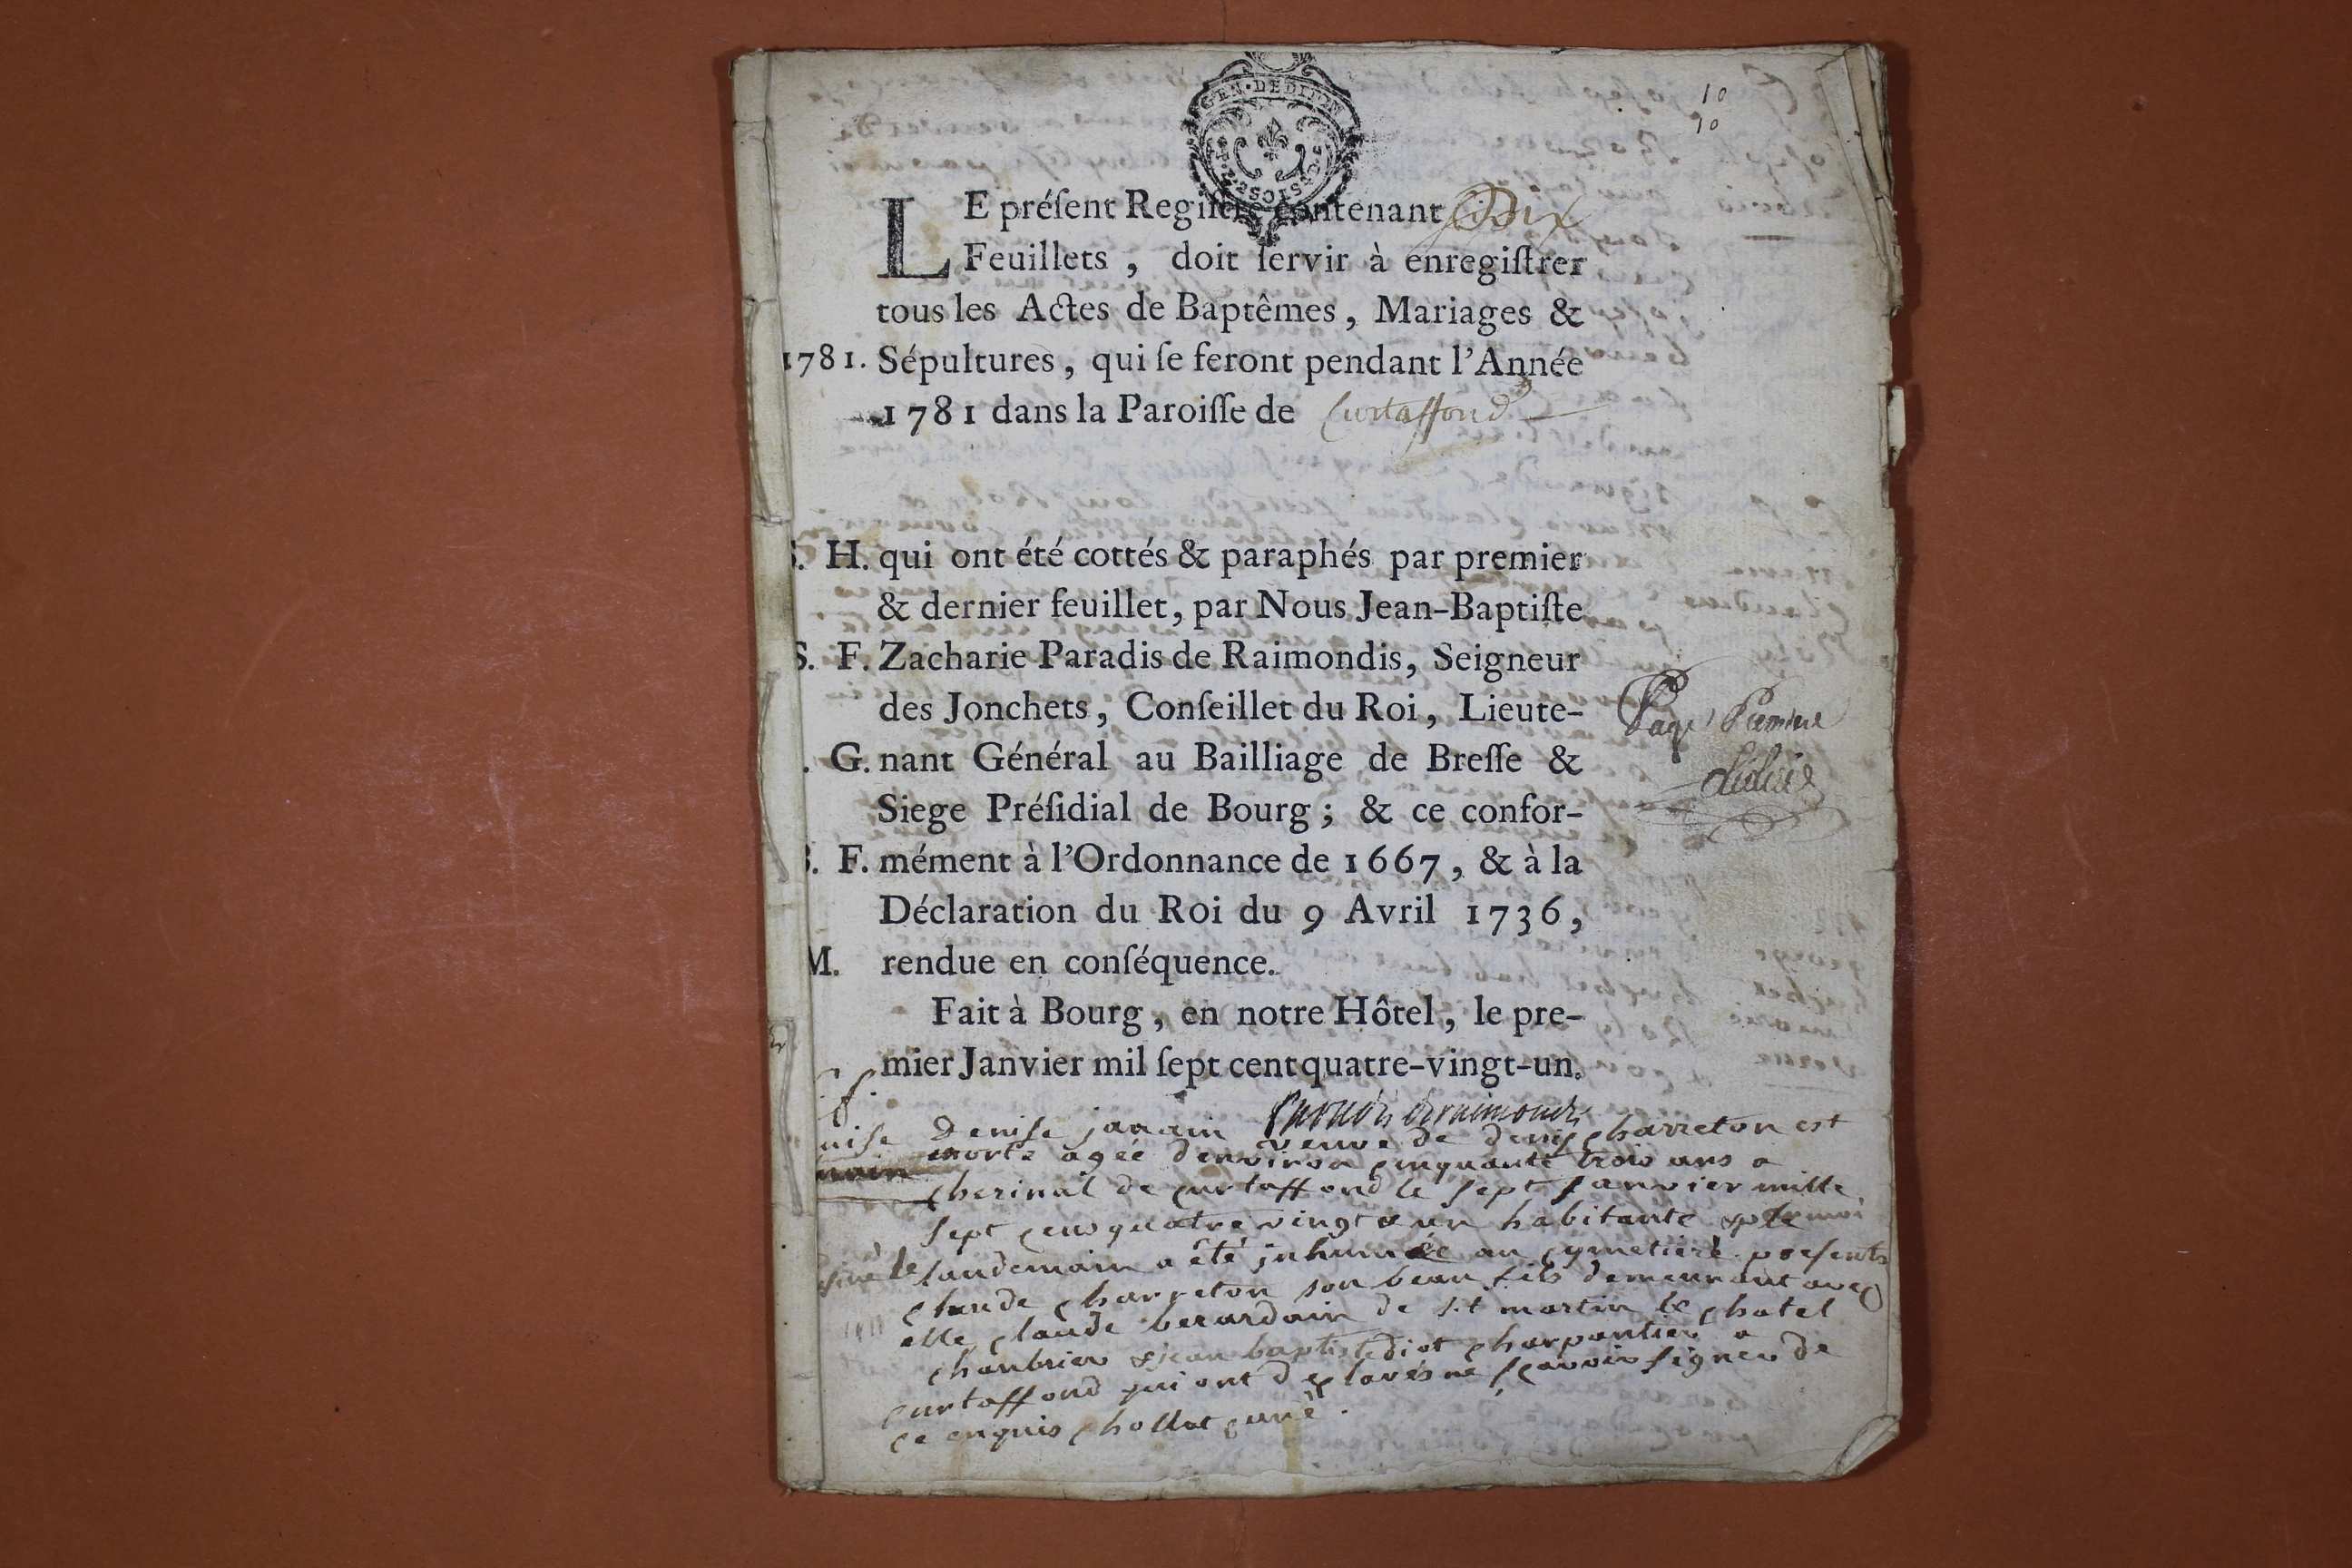 10
10
GEN·DE DIJON
LE préſent Regiſtre contenant Dix
Feuillets, doit ſervir à enregiſtrer
tous les Actes de Baptêmes, Mariages &
1781. Sépultures, qui ſe feront pendant l'Année
1781 dans la Paroiſſe de Curtaffond
S. H. qui ont été cottés & paraphés par premier
& dernier feuillet, par Nous Jean-Baptiſte
S. F. Zacharie Paradis de Raimondis, Seigneur
des Jonchets, Conſeillet du Roi, Lieute-
. G. nant Général au Bailliage de Breſſe &
Siege Préſidial de Bourg; & ce confor-
. F. mément à l'Ordonnance de 1667, & à la
Déclaration du Roi du 9 Avril 1736,
M. rendue en conſéquence.
Fait à Bourg, en notre Hôtel, le pre-
mier Janvier mil ſept cent quatre-vingt-un.
Page Premiere
Paradis de raimondis
Denise janain veuve de deny charreton est
morte agée d'environ cinquante trois ans a
cherinal de curtaffond le sept janvier mille
sept cens quatre vingt & un habitante
le landemain a été inhumée au cymetierè presents
claude charreton son beau fils demeurant avec
elle claude berardain de st martin le chatel
& jean baptiste diot charpantier a
curtaffond qui ont déclarés ne sçavoir signer de
ce enquis chollat curé.